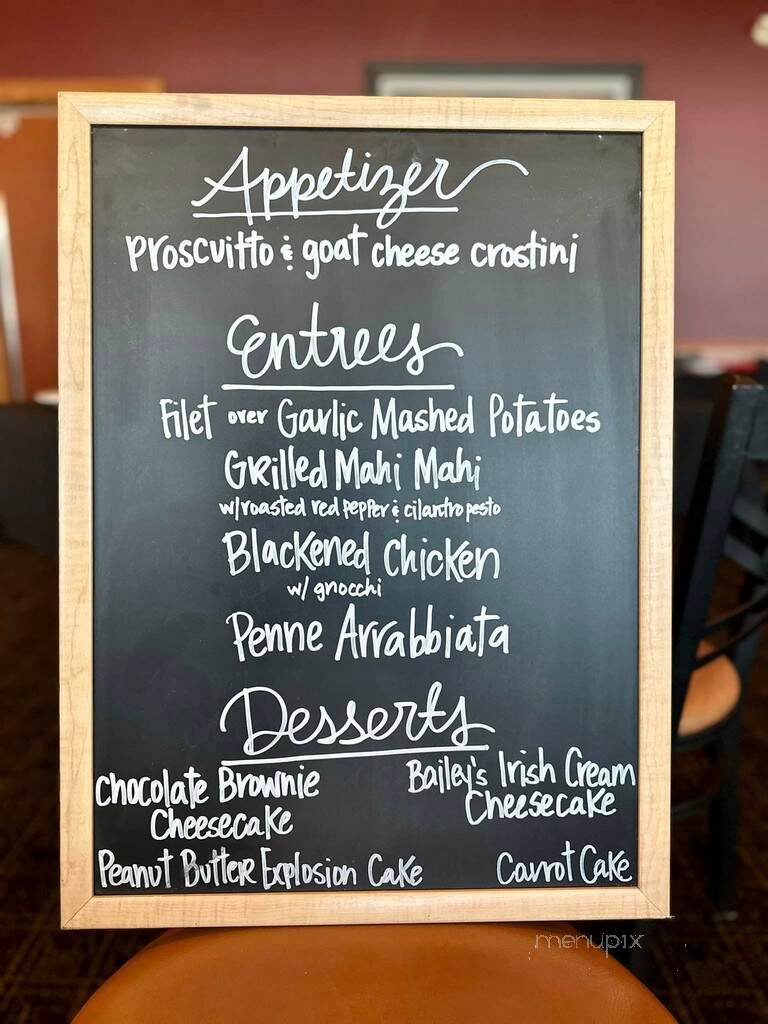 Appetizer
Proscuitto & goat cheese crostini
Entrees
Filet over Garlic Mashed Potatoes
Grilled Mahi Mahi
w/roasted red pepper & cilantro pesto
Blackened Chicken
w/ gnocchi
Penne Arrabbiata
Desserts
Chocolate Brownie
Cheesecake
Bailey's Irish Cream
Cheesecake
Peanut Butter Explosion Cake
Carrot Cake
menupix